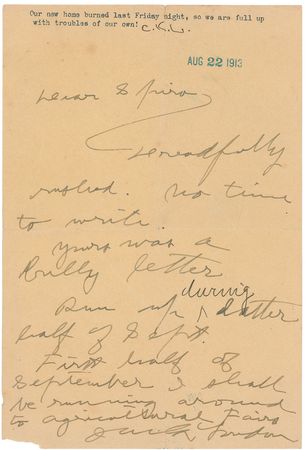 Our new home burned last Friday night, so we are full up
with troubles of our own! C.K.L.
AUG 22 1913
Dear Spiro
Dreadfully
rushed. No time
to write.
Yours was a
bully letter
Run up during latter
half of Sept.
First half of
September I shall
be running around
to agricultural Fairs
Jack London